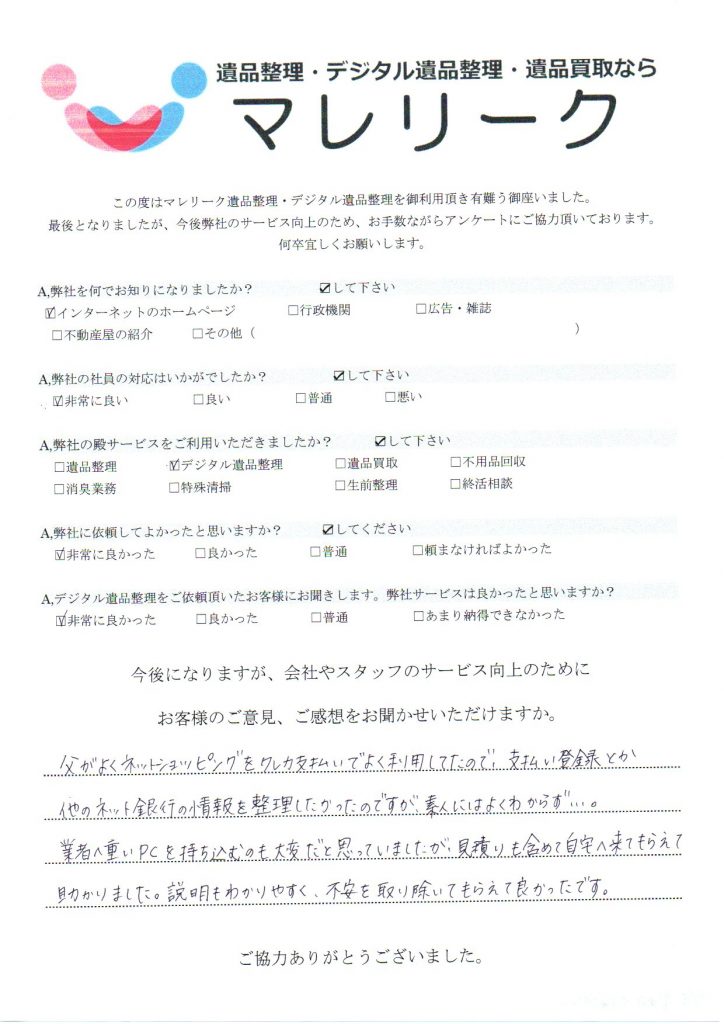 遺品整理・デジタル遺品整理・遺品買取なら
マレリーク
この度はマレリーク遺品整理・デジタル遺品整理を御利用頂き有難う御座いました。
最後となりましたが、今後弊社のサービス向上のため、お手数ながらアンケートにご協力頂いております。
何卒宜しくお願いします。
A,弊社を何でお知りになりましたか？ ☑して下さい
☑インターネットのホームページ □行政機関 □広告・雑誌
□不動産屋の紹介 □その他（ ）
A,弊社の社員の対応はいかがでしたか？ ☑して下さい
☑非常に良い □良い □普通 □悪い
A,弊社の殿サービスをご利用いただきましたか？ ☑して下さい
□遺品整理 ☑デジタル遺品整理 □遺品買取 □不用品回収
□消臭業務 □特殊清掃 □生前整理 □終活相談
A,弊社に依頼してよかったと思いますか？ ☑してください
☑非常に良かった □良かった □普通 □頼まなければよかった
A,デジタル遺品整理をご依頼頂いたお客様にお聞きします。弊社サービスは良かったと思いますか？
☑非常に良かった □良かった □普通 □あまり納得できなかった
今後になりますが、会社やスタッフのサービス向上のために
お客様のご意見、ご感想をお聞かせいただけますか。
父がよくネットショッピングをクレカ支払いでよく利用してたので、支払い登録とか
他のネット銀行の情報を整理したかったのですが、素人にはよくわからず…。
業者へ重いPCを持ち込むのも大変だと思っていましたが、見積りも含めて自宅へ来てもらえて
助かりました。説明もわかりやすく、不安を取り除いてもらえて良かったです。
ご協力ありがとうございました。